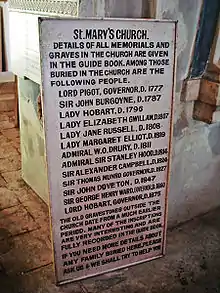 St. MARY'S CHURCH.
DETAILS OF ALL MEMORIALS AND
GRAVES IN THE CHURCH ARE GIVEN
IN THE GUIDE BOOK. AMONG THOSE
BURIED IN THE CHURCH ARE THE
FOLLOWING PEOPLE.
LORD PIGOT, GOVERNOR, D. 1777
SIR JOHN BURGOYNE, D. 1787
LADY HOBART, D. 1796
LADY ELIZABETH GWILLAN, D. 1807
LADY JANE RUSSELL, D. 1808
LADY MARGARET ELLIOT, D. 1819
ADMIRAL W.O. DRURY, D. 1811
ADMIRAL SIR STANLEY HOOD, D.
SIR ALEXANDER CAMPBELL, D.
SIR THOMAS MUNRO GOVERNOR, D. 1827
SIR JOHN DOVETON, D. 1847
SIR GEORGE HENRY WARD, GOVERNOR, D. 1860
LORD HOBART, GOVERNOR, D. 1875
THE OLD GRAVESTONES OUTSIDE THE
CHURCH DATE FROM A MUCH EARLIER
PERIOD. MANY OF THE INSCRIPTIONS
ARE VERY INTERESTING AND ARE
FULLY RECORDED IN THE GUIDE BOOK.
IF YOU NEED MORE DETAILS ABOUT
ANY FAMILY BURIED HERE, PLEASE
ASK US & WE SHALL TRY TO HELP YOU